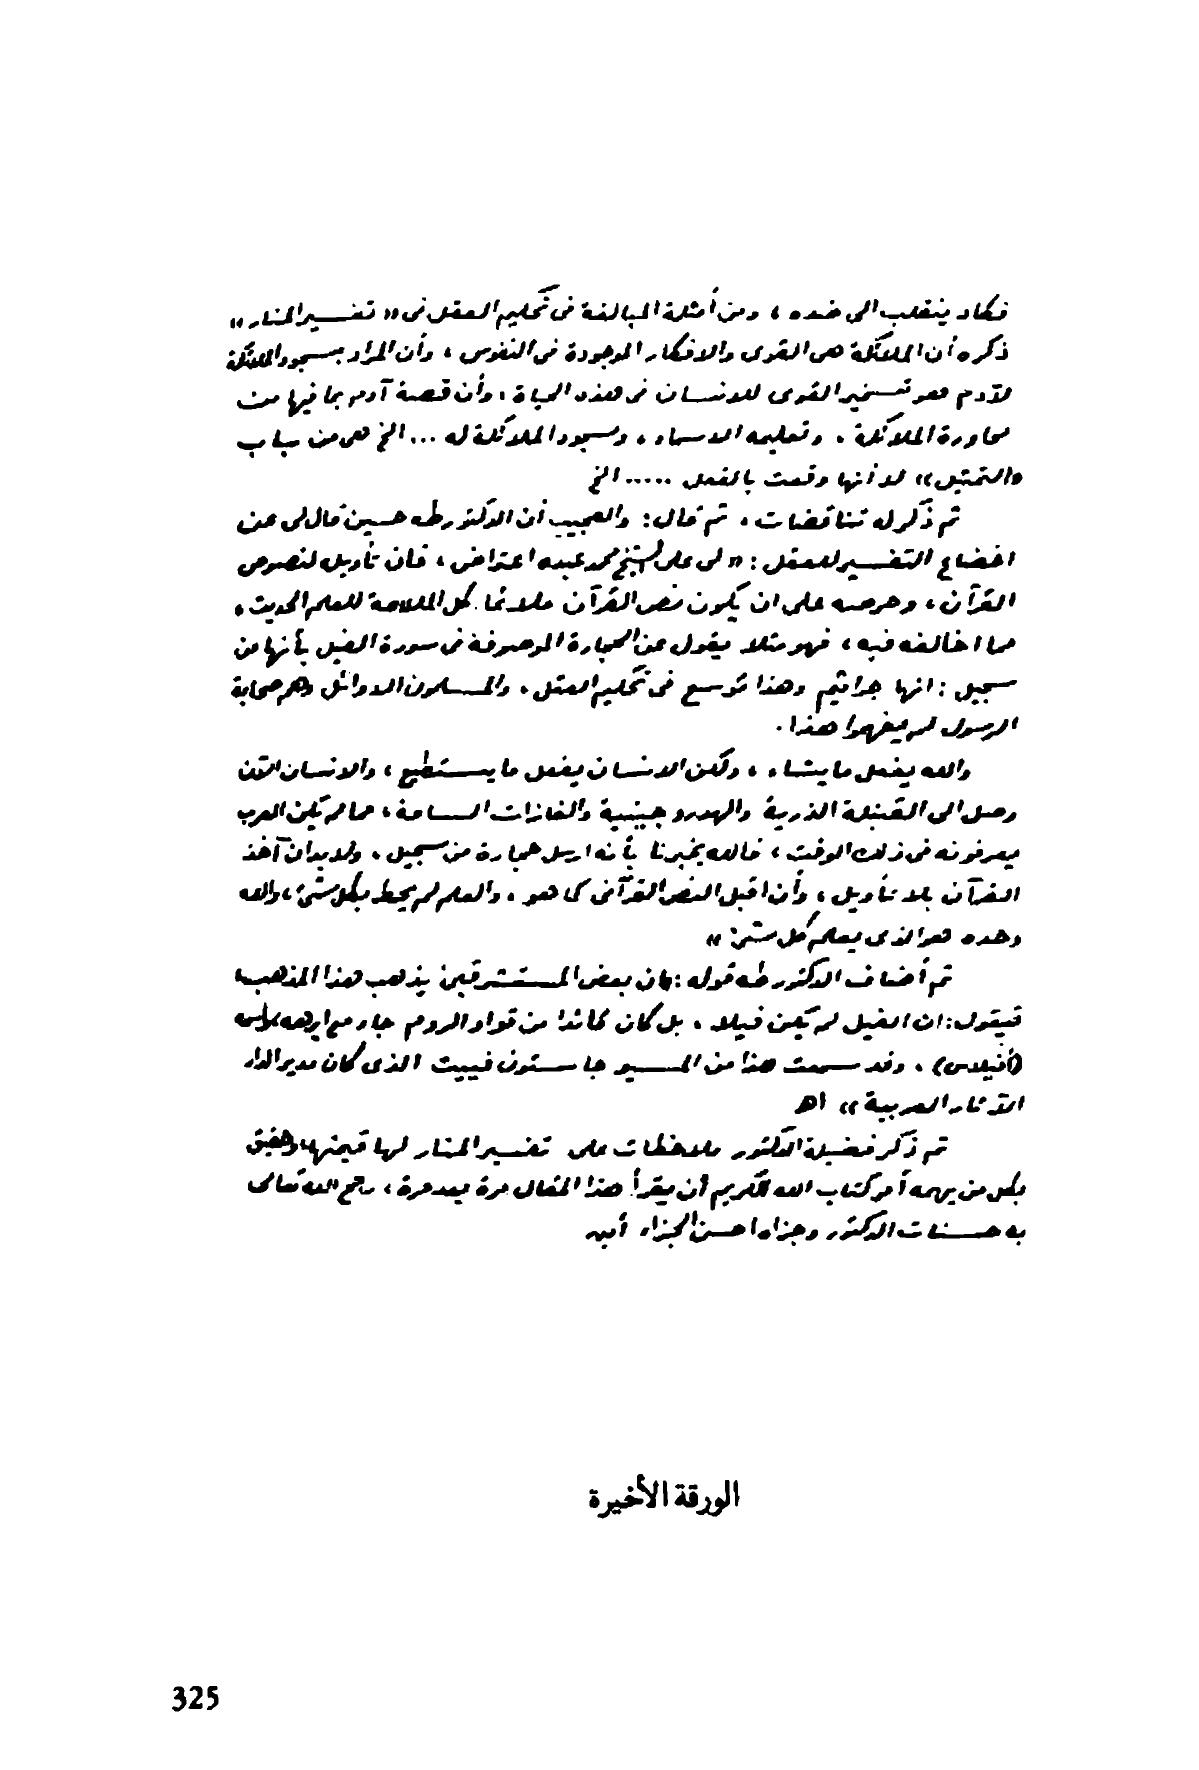 فكاد ينقلب الى ضده ، ومن أمثلة المبالغة فى تحكيم العقل فى « تفسير المنار »
ذكره أن الملائكة هى القوى والافكار الموجودة فى النفوس ، وأن المراد بسجود الملائكة
لآدم هو تسخير القوى للانسان فى هذه الحياة ، وأن قصة آدم بما فيها من
محاورة الملائكة ، وتعليمه الاسماء ، وسجود الملائكة له ... الخ هى من باب
« التمثيل » لا أنها وقعت بالفعل ..... الخ
ثم ذكر له تناقضات ، ثم قال : والعجيب أن الدكتور طه حسين قال لى عن
اخضاع التفسير للعقل : « لى على الشيخ محمد عبده اعتراض ، فان تأويله لنصوص
القرآن ، وحرصه على ان يكون نص القرآن ملائما كل الملاءمة للعلم الحديث ،
مما اخالفه فيه ، فهو مثلا يقول عن الحجارة الموصوفة فى سورة الفيل بأنها من
سجيل : انها جراثيم وهذا توسع فى تحكيم العقل ، والمسلمون الاوائل وهم صحابة
الرسول لم يفهموا هذا .
والله يفعل ما يشاء ، ولكن الانسان يفعل ما يستطيع ، والانسان الآن
وصل الى القنبلة الذرية والهدروجينية والغازات السامة ، مما لم يكن العرب
يعرفونه فى ذلك الوقت ، فالله يخبرنا بأنه ارسل حجارة من سجيل ، ولابد ان آخذ
القرآن بلا تأويل ، وأن اقبل النص القرآنى كما هو ، والعلم لم يحط بكل شئ ، والله
وحده هو الذى يعلم كل شئ »
ثم أضاف الدكتور طه قوله : بان بعض المستشرقين يذهب هذا المذهب
فيقول : ان الفيل لم يكن فيلا ، بل كان قائدا من قواد الروم جاء مع ابرهه واسمه
(أفيلاس) ، وقد سمعت هذا من المسيو جاستون فييت الذى كان مدير الدار
الآثار العربية » اهـ
ثم ذكر فضيلة الدكتور ملاحظات على تفسير المنار لها قيمتها وحقيق
بكل من يهمه أمر كتاب الله الكريم أن يقرأ هذا المقال مرة بعد مرة ، رحم الله تعالى
به حسنات الدكتور وجزاه احسن الجزاء أمين
الورقة الأخيرة
325